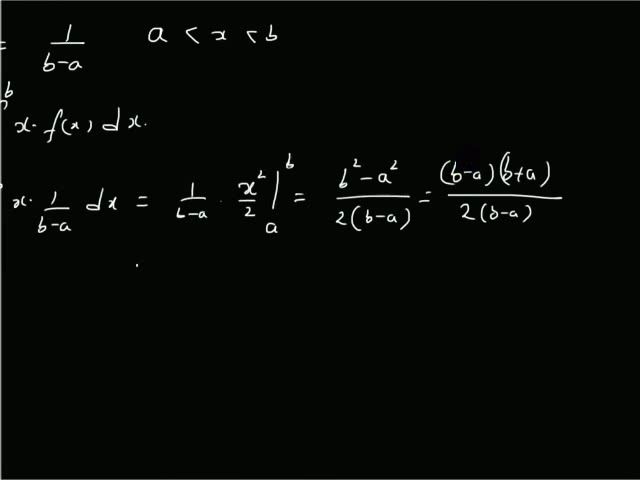 = 1/(b-a) a < x < b
b
x. f(x) dx.
x. 1/(b-a) dx = 1/(b-a) . x²/2 |ₐᵇ = (b²-a²)/(2(b-a)) = ((b-a)(b+a))/(2(b-a))